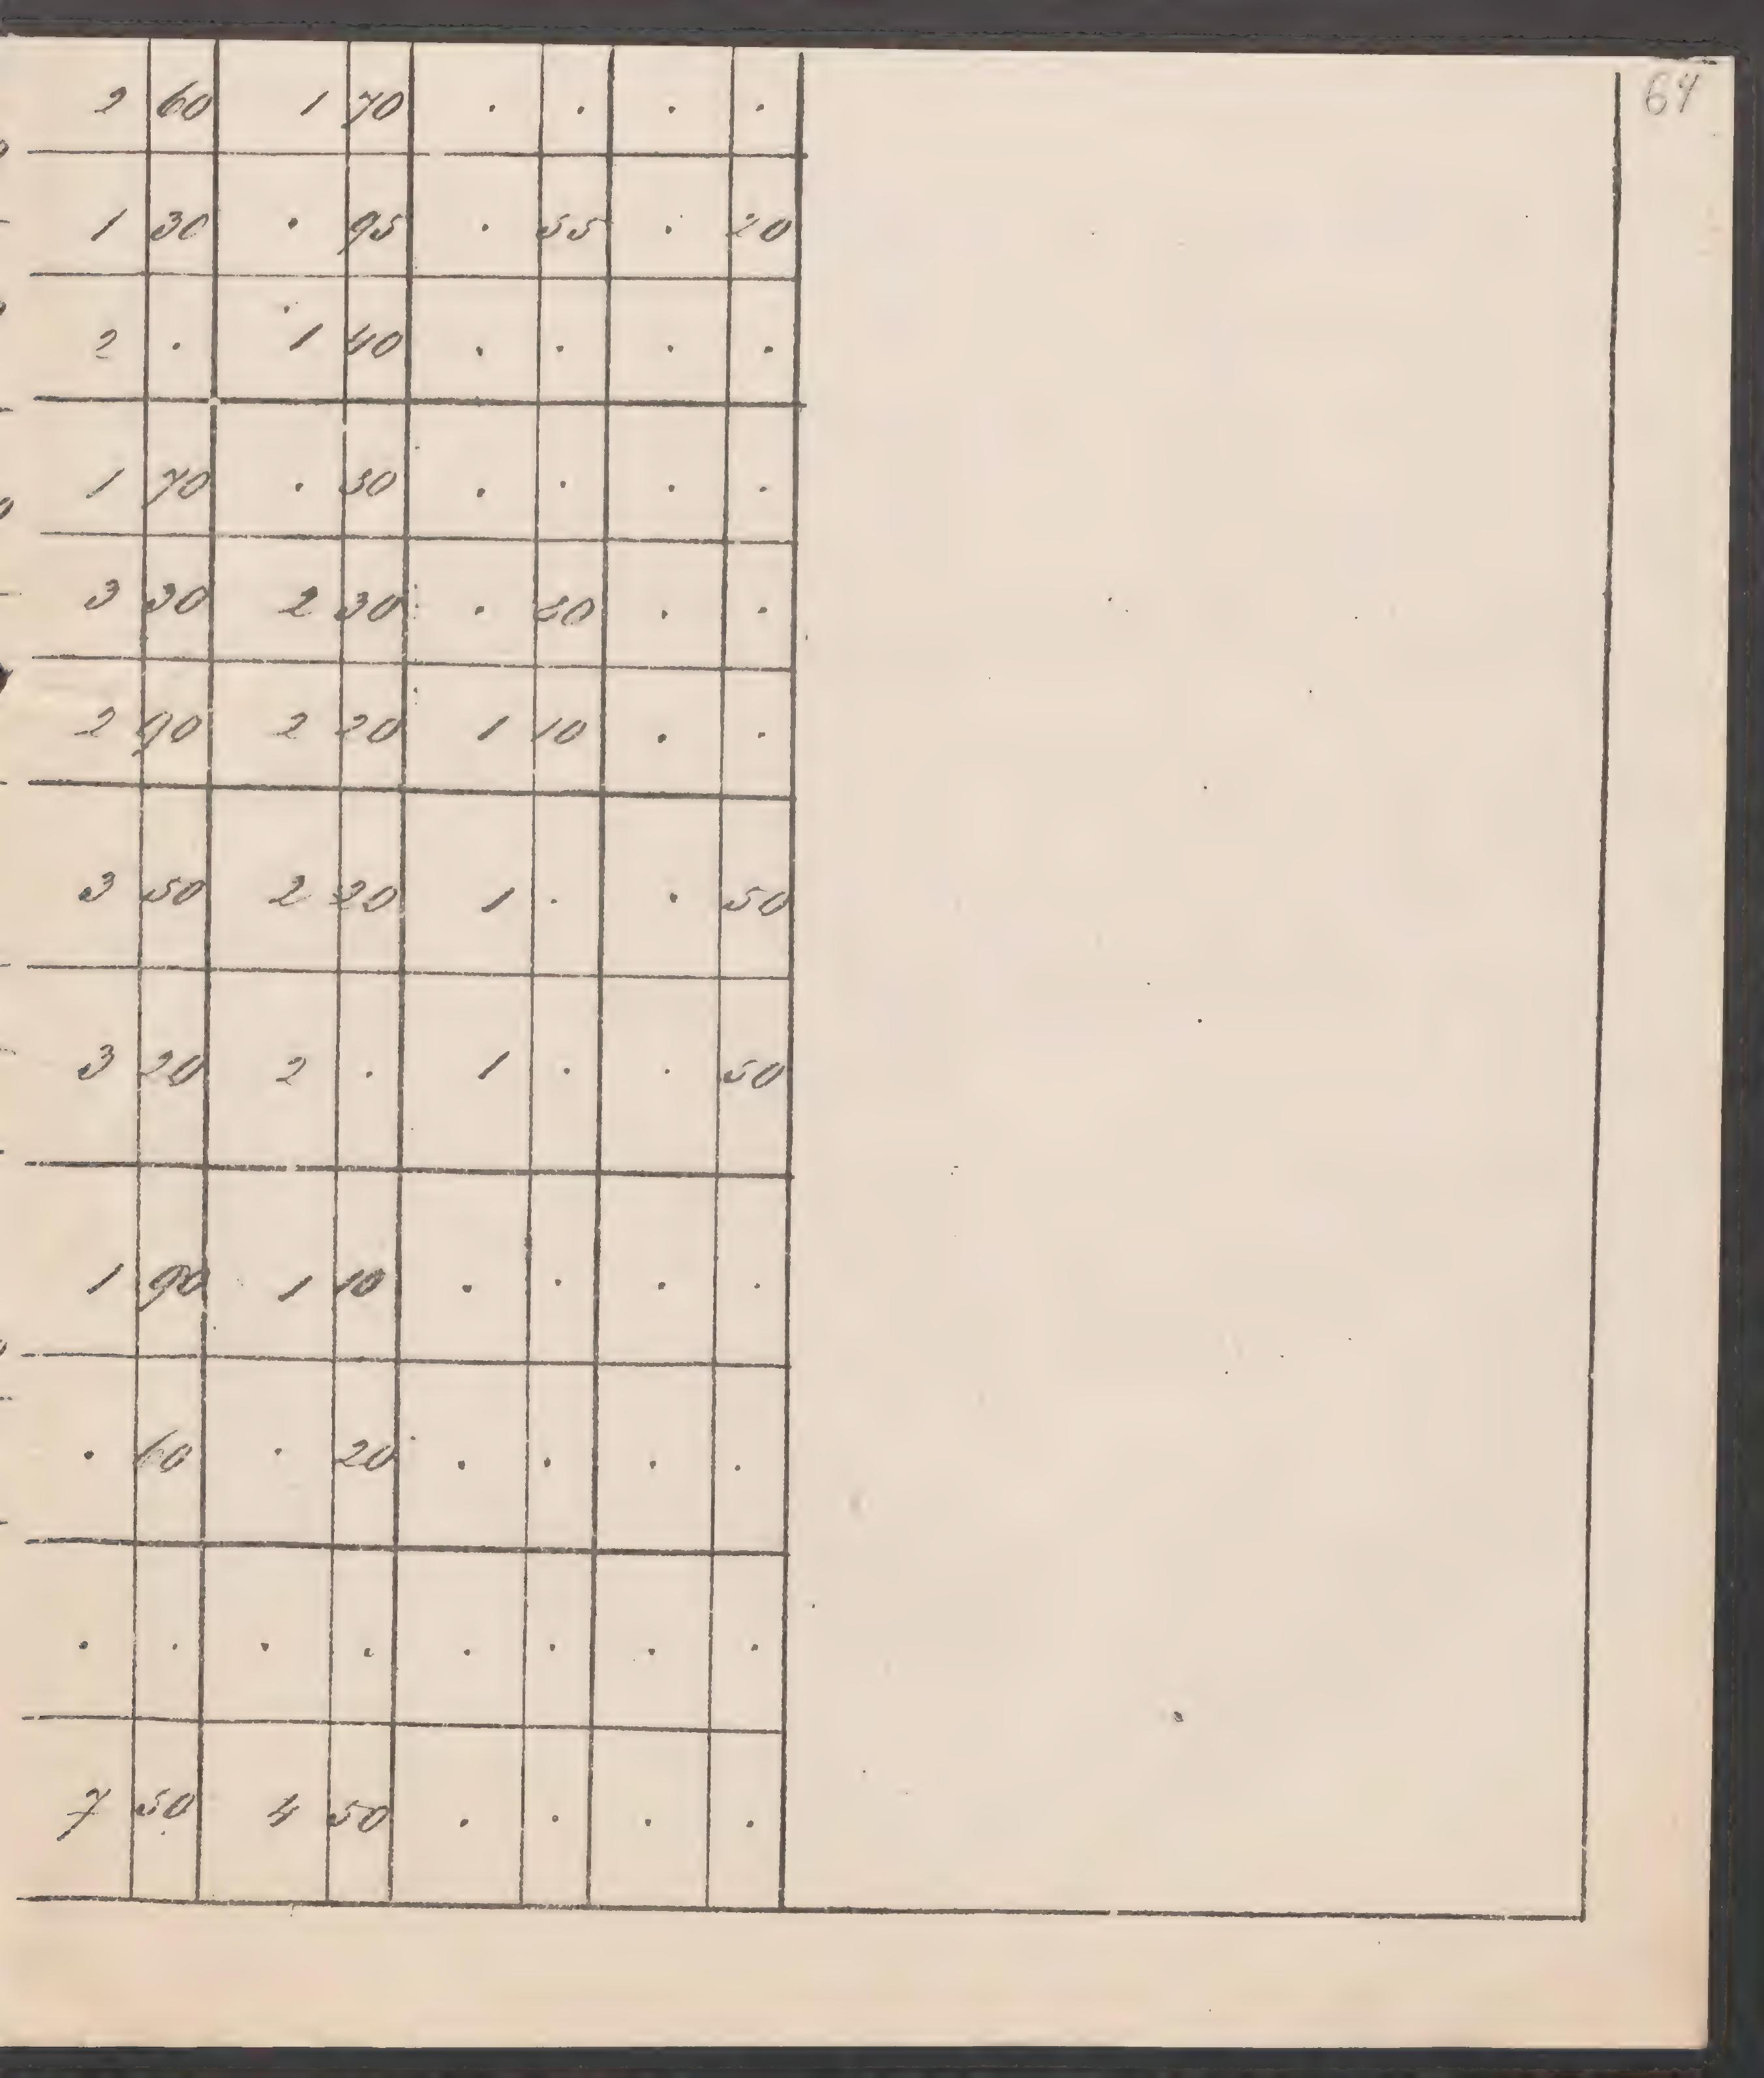 64
2 60 1 70 . . . .
1 30 . 95 . 55 . 20
2 . 1 40 . . . .
1 70 . 30 . . . .
3 30 2 30 . . .
2 90 2 20 1 10 . .
3 50 2 20 1 . . 50
3 20 2 . 1 . . 50
1 90 1 10 . . . .
. 60 . 20 . . . .
. . . . . . . .
7 50 4 50 . . . .